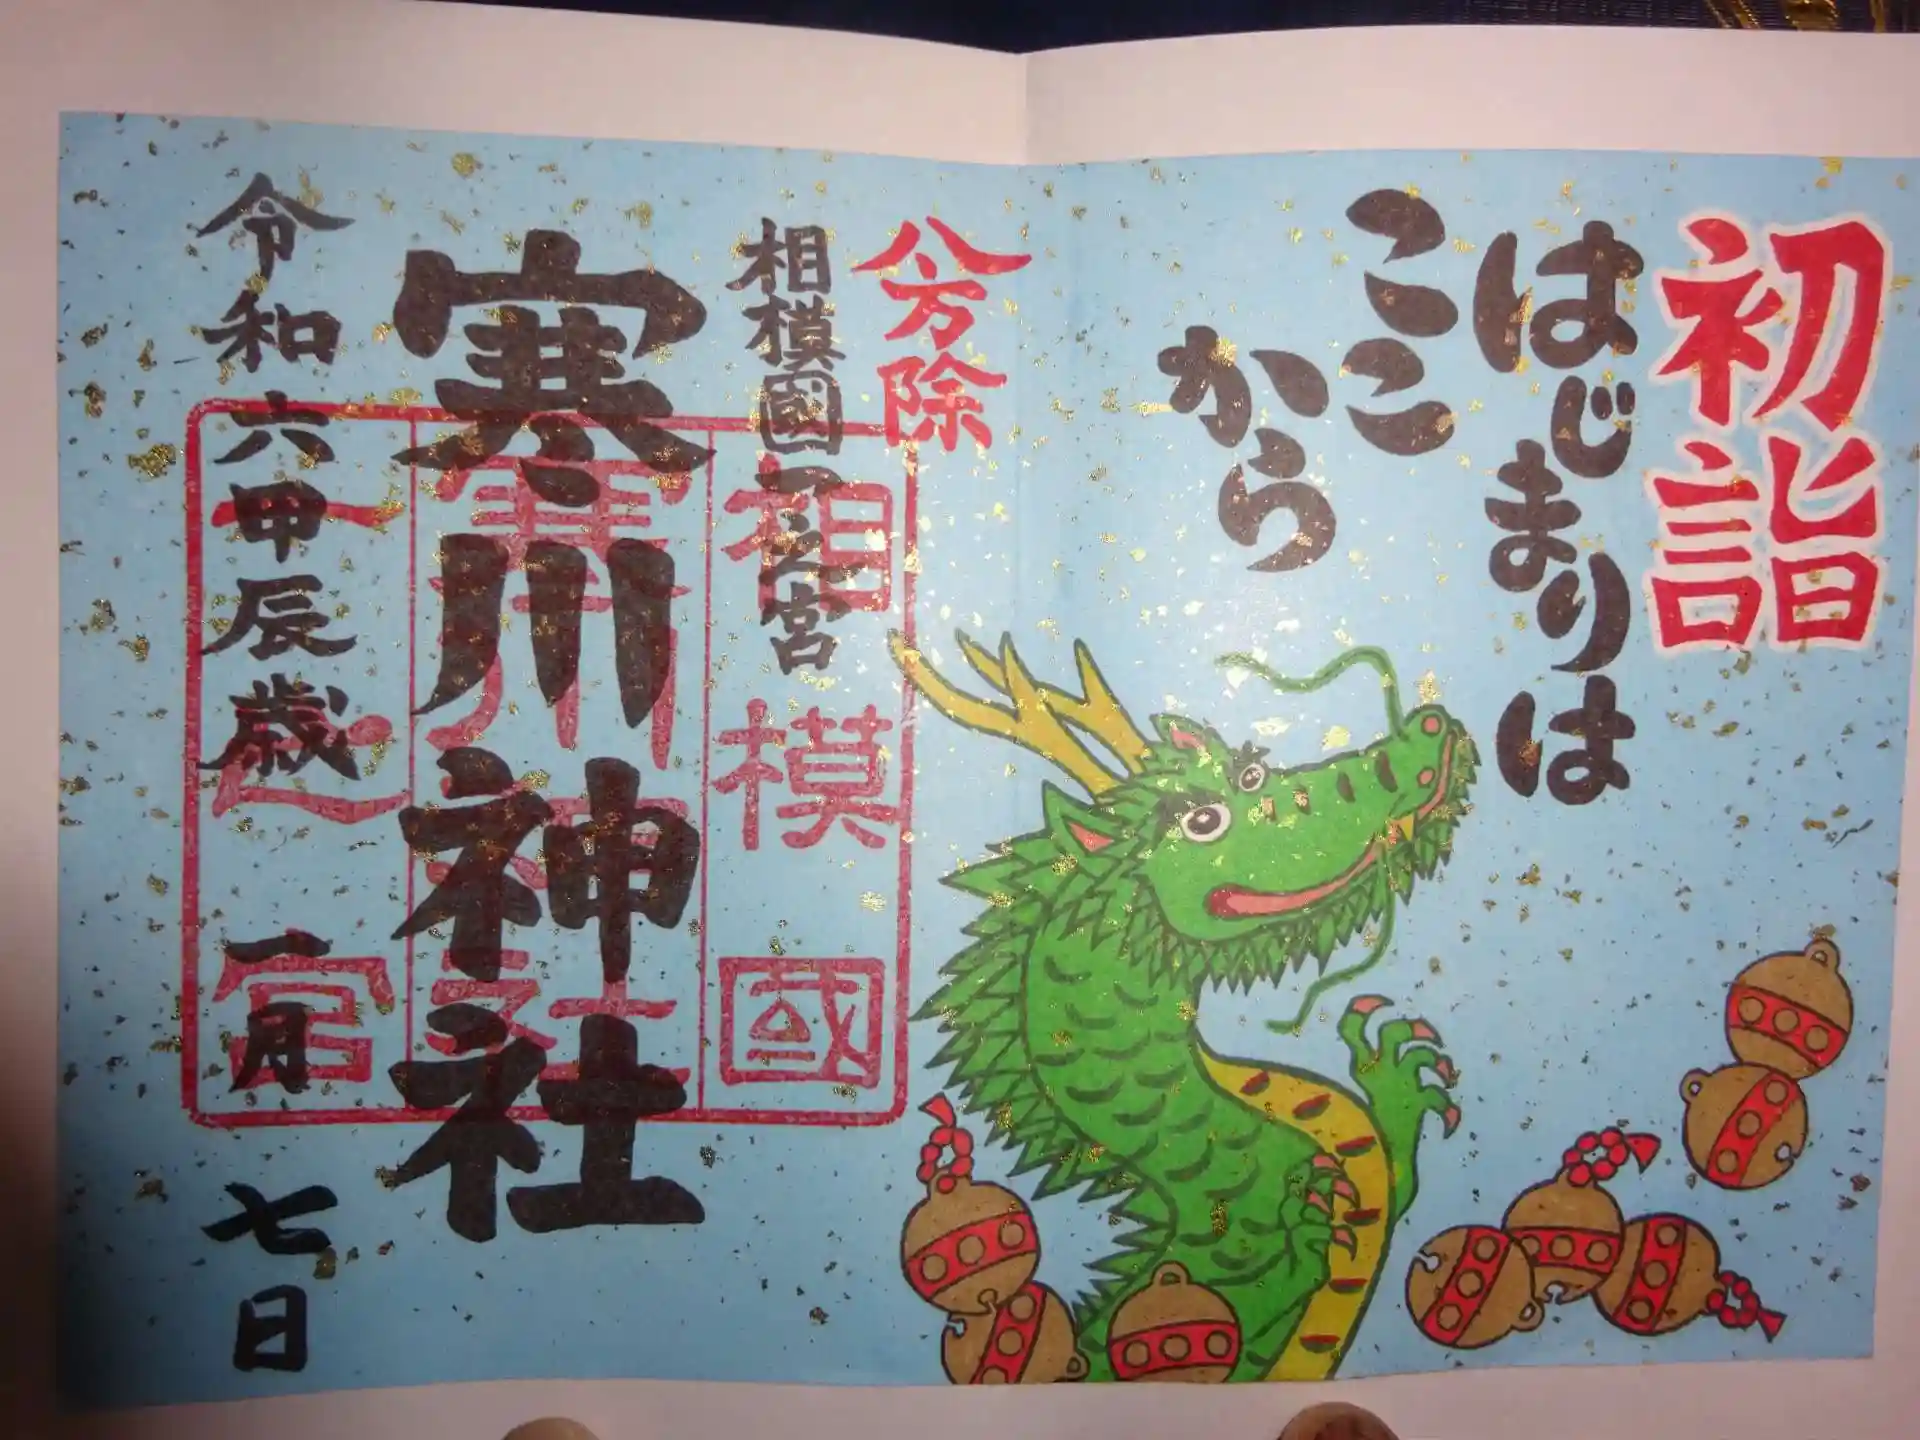 初詣
はじまりは
ここ
から
八方除
相模國一之宮
寒川神社
令和六甲辰歳一月七日
相模國
寒川神社
一之宮